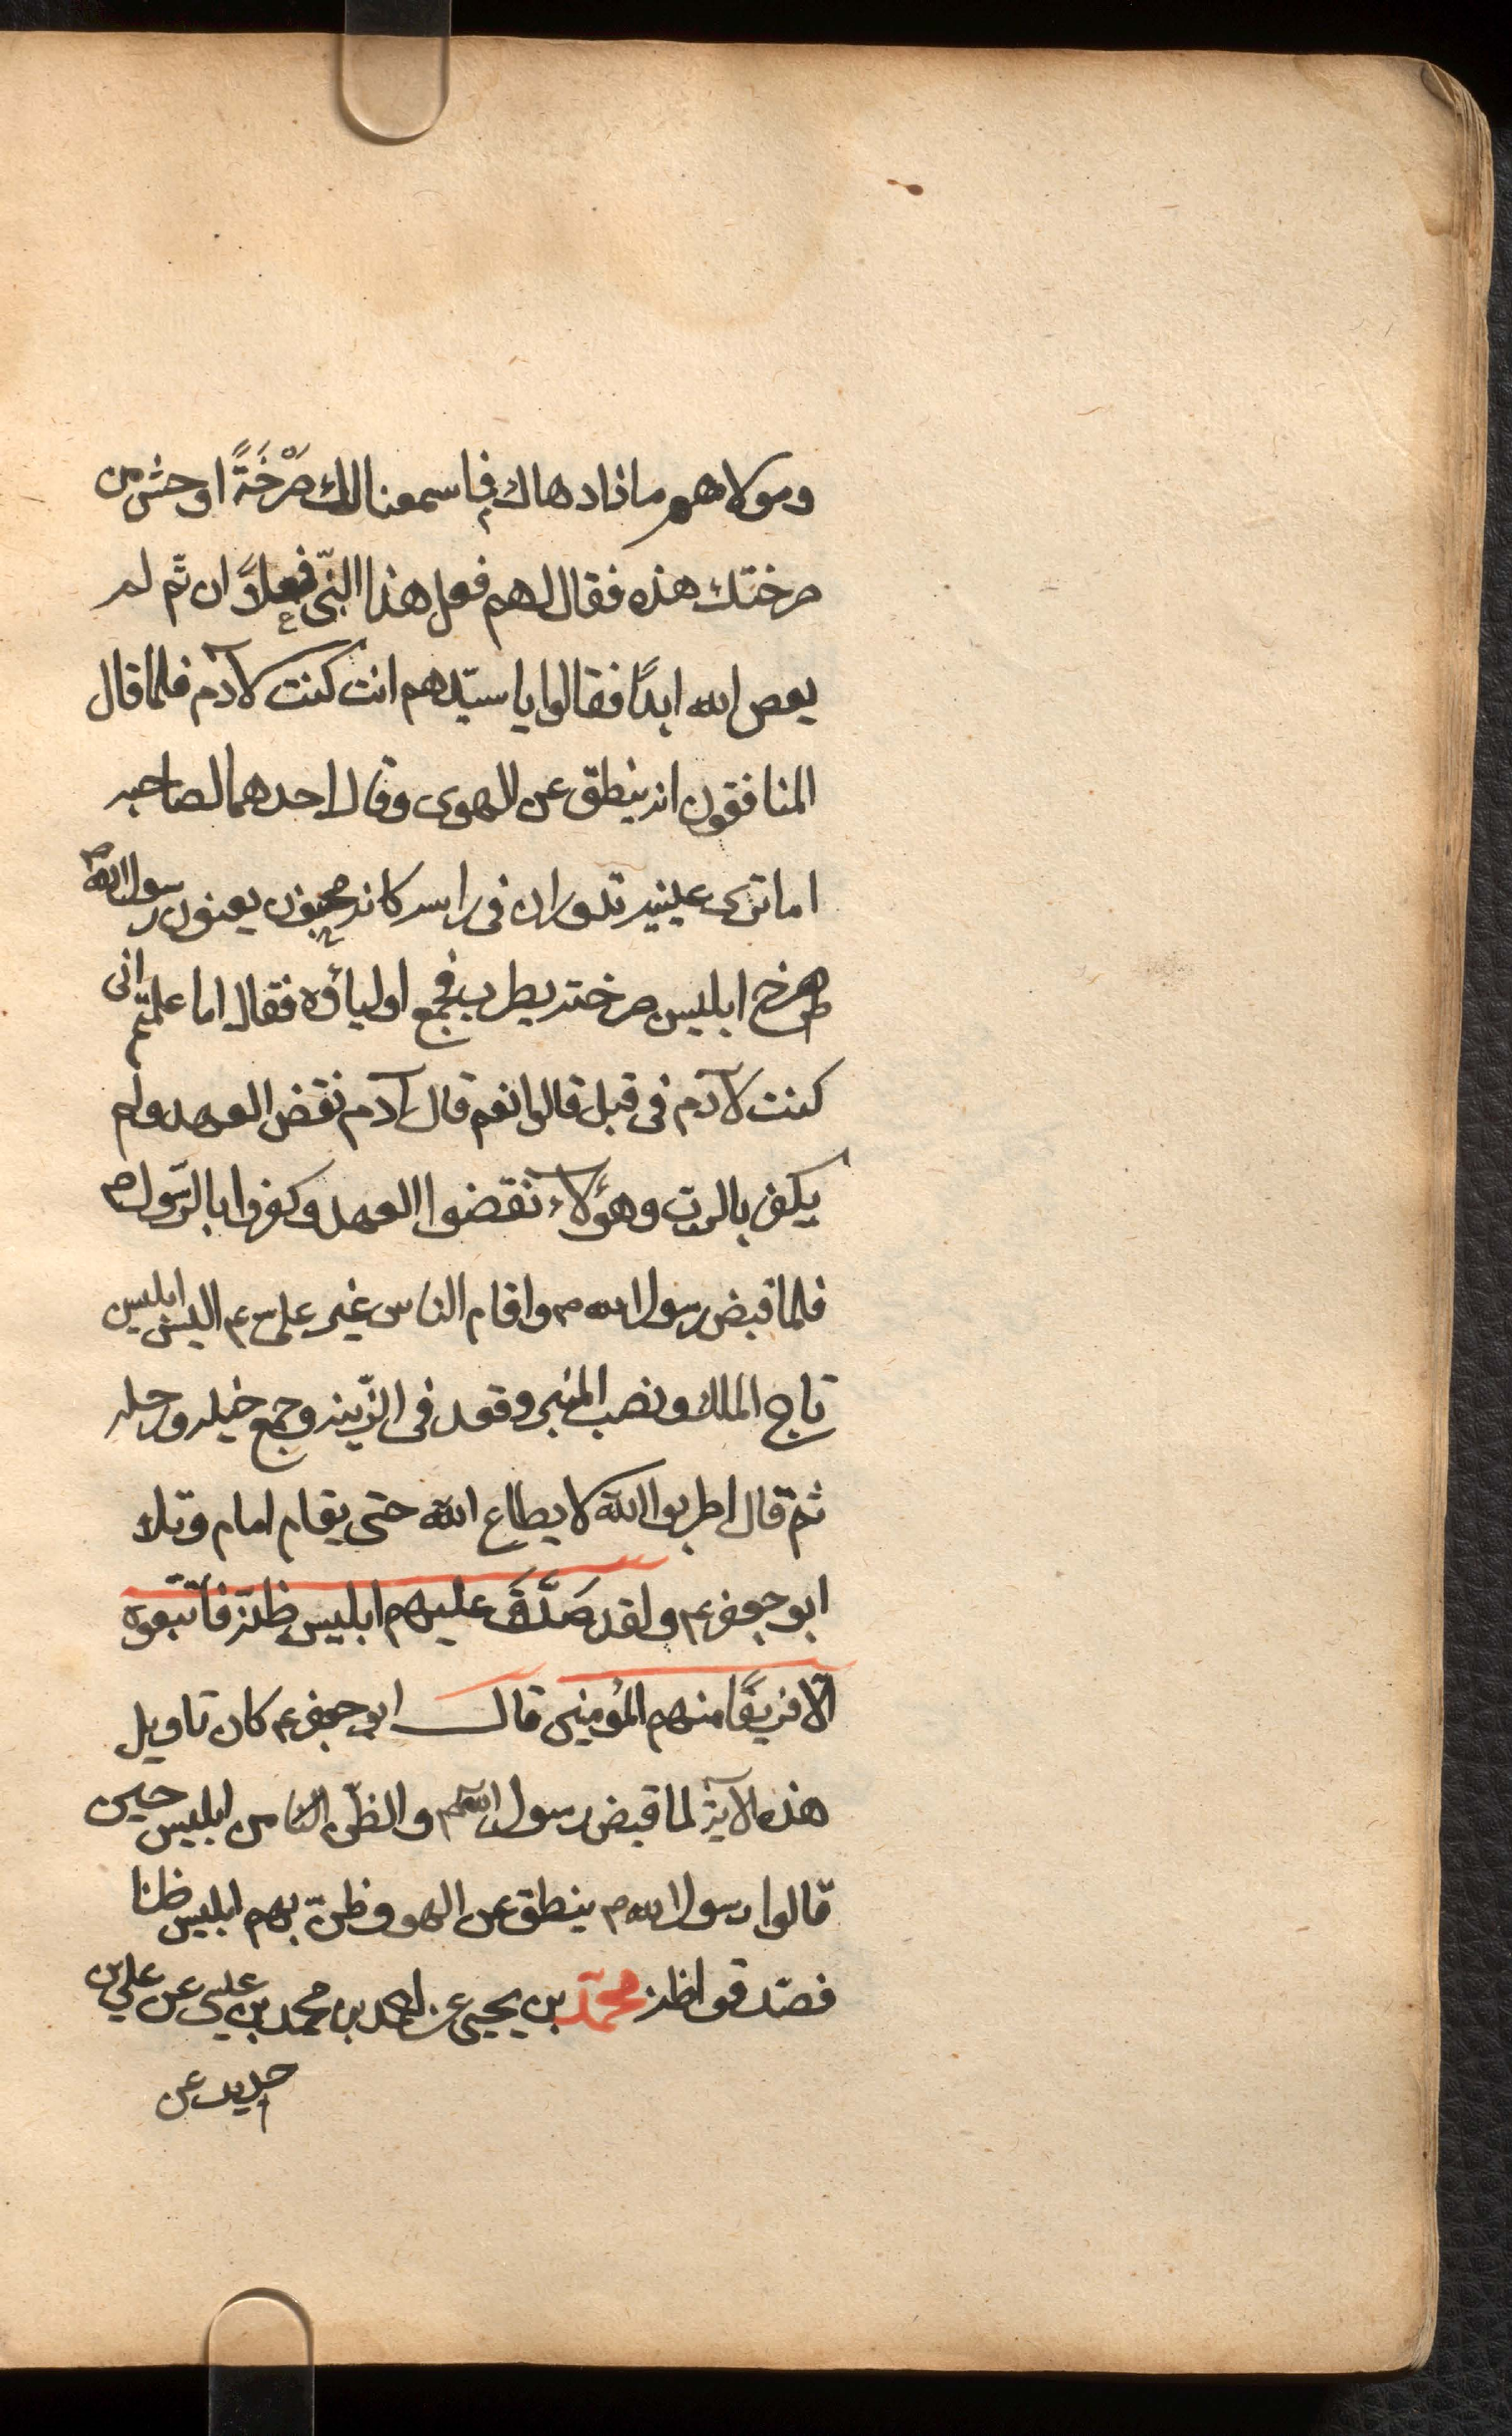 ومولاهم ماذا دهاك فما سمعنا لك صَرْخَةً اوحش من
صرختك هذه فقال لهم فعل هذا النبّى فعلاً ان تم لم
يعص الله ابداً فقالوا يا سيّدهم انت كنت لآدم فلما قال
المنافقون انه ينطق عن الهوى وقال احدهما لصاحبه
اما ترى عينيه تدوران فى راسه كانه مجنون يعنون رسول الله ص
صرخ ابليس صرخته يطرب فجمع اولياؤه فقال اما علمتم انى
كنت لآدم فى قبل قالوا نعم قال آدم نقض العهد ولم
يكفر بالرب وهؤلآء نقضوا العهد وكفروا بالرّسول ص
فلما قبض رسول الله ص واقام الناس غير على ع البس ابليس
تاج الملك ونصب المنبر وقعد فى الزّينه وجمع خيله ورجله
ثم قال اطربوا لا يطاع الله حتى يقام امام وتلا
ابو جعفر ع ولقد صَدَّقَ عليهم ابليس ظنّه فاتّبعوه
الّا فريقًا منهم المؤمنين قال ابو جعفر ع كان تاويل
هذه الآية لما قبض رسول الله ص والظّن من ابليس حين
قالوا رسول الله ص ينطق عن الهو فظنّ بهم ابليس ظنا
فصدّقوا ظنه محمّد بن يحيى عن احمد بن محمد بن عيسى عن على بن
حديد عن